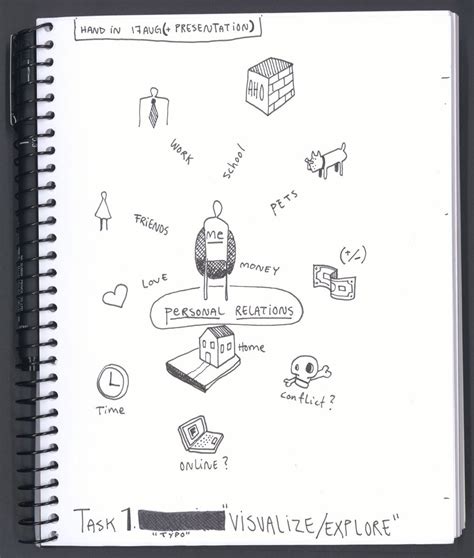 HAND IN 17AUG (+ PRESENTATION)
AHO
WORK
SCHOOL
PETS
FRIENDS
ME
(+/-)
LOVE
MONEY
PERSONAL RELATIONS
Home
Time
conflict?
F
ONLINE?
TASK 1. "VISUALIZE/EXPLORE"
"TYPO"